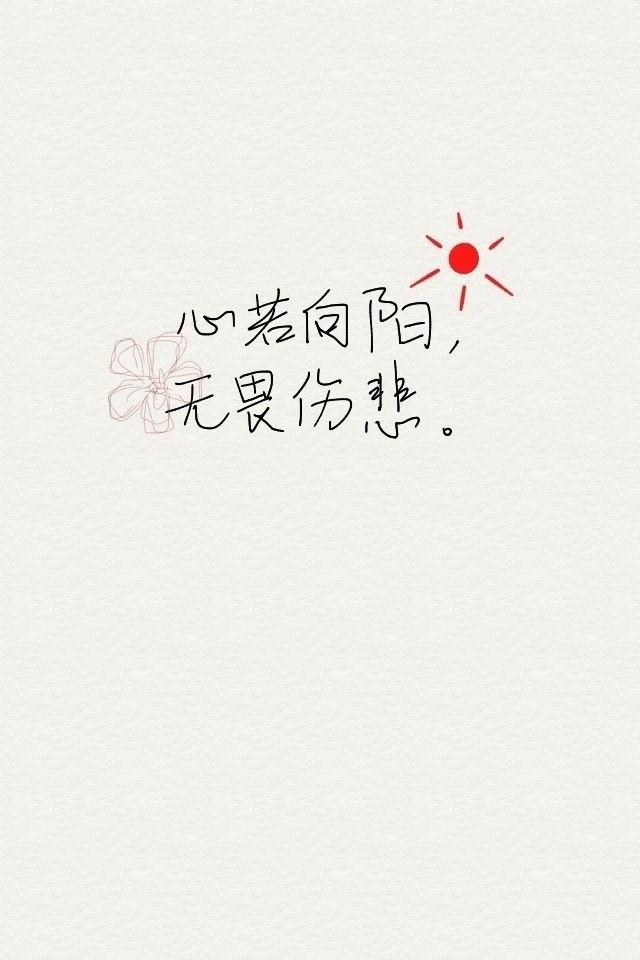 心若向阳,
无畏伤悲。